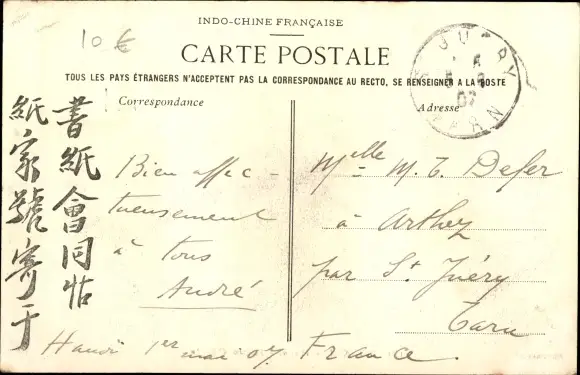 INDO-CHINE FRANÇAISE
10 €
CARTE POSTALE
TOUS LES PAYS ÉTRANGERS N'ACCEPTENT PAS LA CORRESPONDANCE AU RECTO, SE RENSEIGNER A LA POSTE
Correspondance
Adresse
書紙會同怗
紙家號寄于
Bien affec-
tueusement
à tous
André
Hanoï 1er mai 07
Melle M. T. Defer
à Arthez
par St Juéry
Tarn
France.
TARN